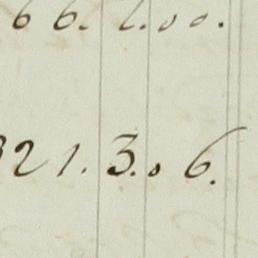 66. 2.00.
321. 3.06.